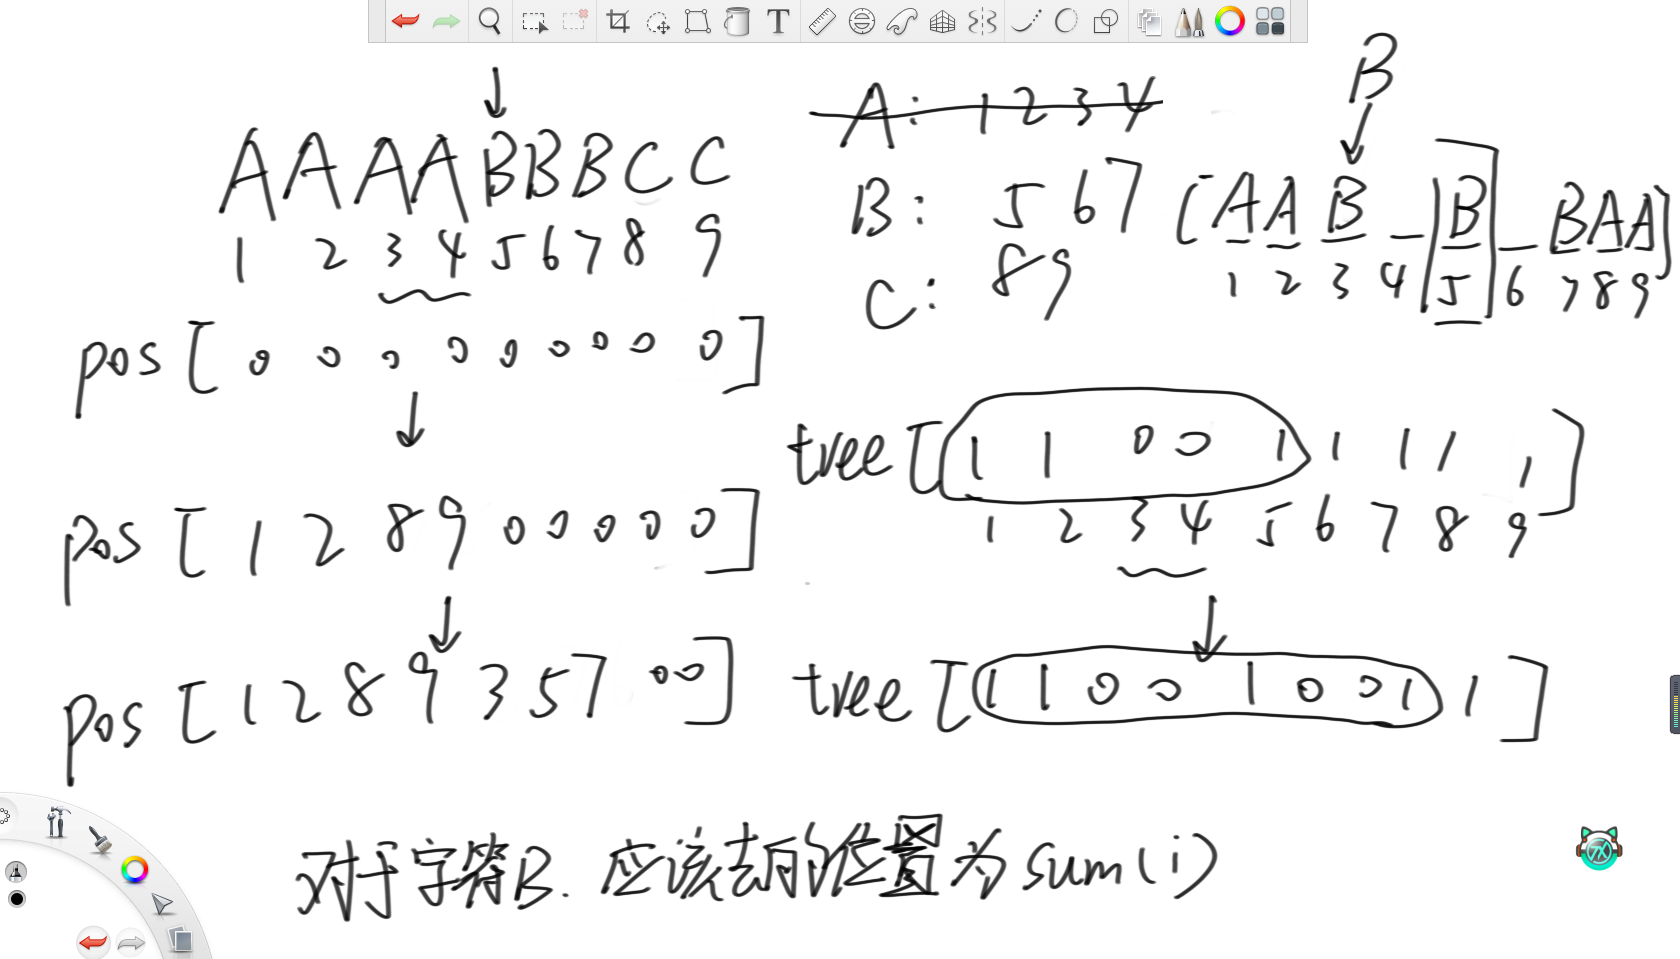 A A A A B B B C C
1 2 3 4 5 6 7 8 9
pos [ 0 0 0 0 0 0 0 0 0 ]
pos [ 1 2 8 9 0 0 0 0 0 ]
pos [ 1 2 8 9 3 5 7 0 0 ]
A: 1 2 3 4
B: 5 6 7
C: 8 9
B
[ A A B _ B _ B A A ]
1 2 3 4 5 6 7 8 9
tree [ 1 1 0 0 1 1 1 1 1 ]
1 2 3 4 5 6 7 8 9
tree [ 1 1 0 0 1 0 0 1 1 ]
对于字符B. 应该去的位置为sum(i)